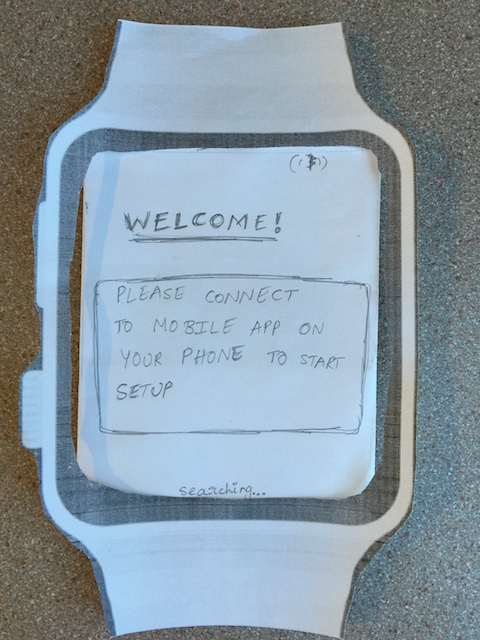 WELCOME!
PLEASE CONNECT
TO MOBILE APP ON
YOUR PHONE TO START
SETUP
searching...